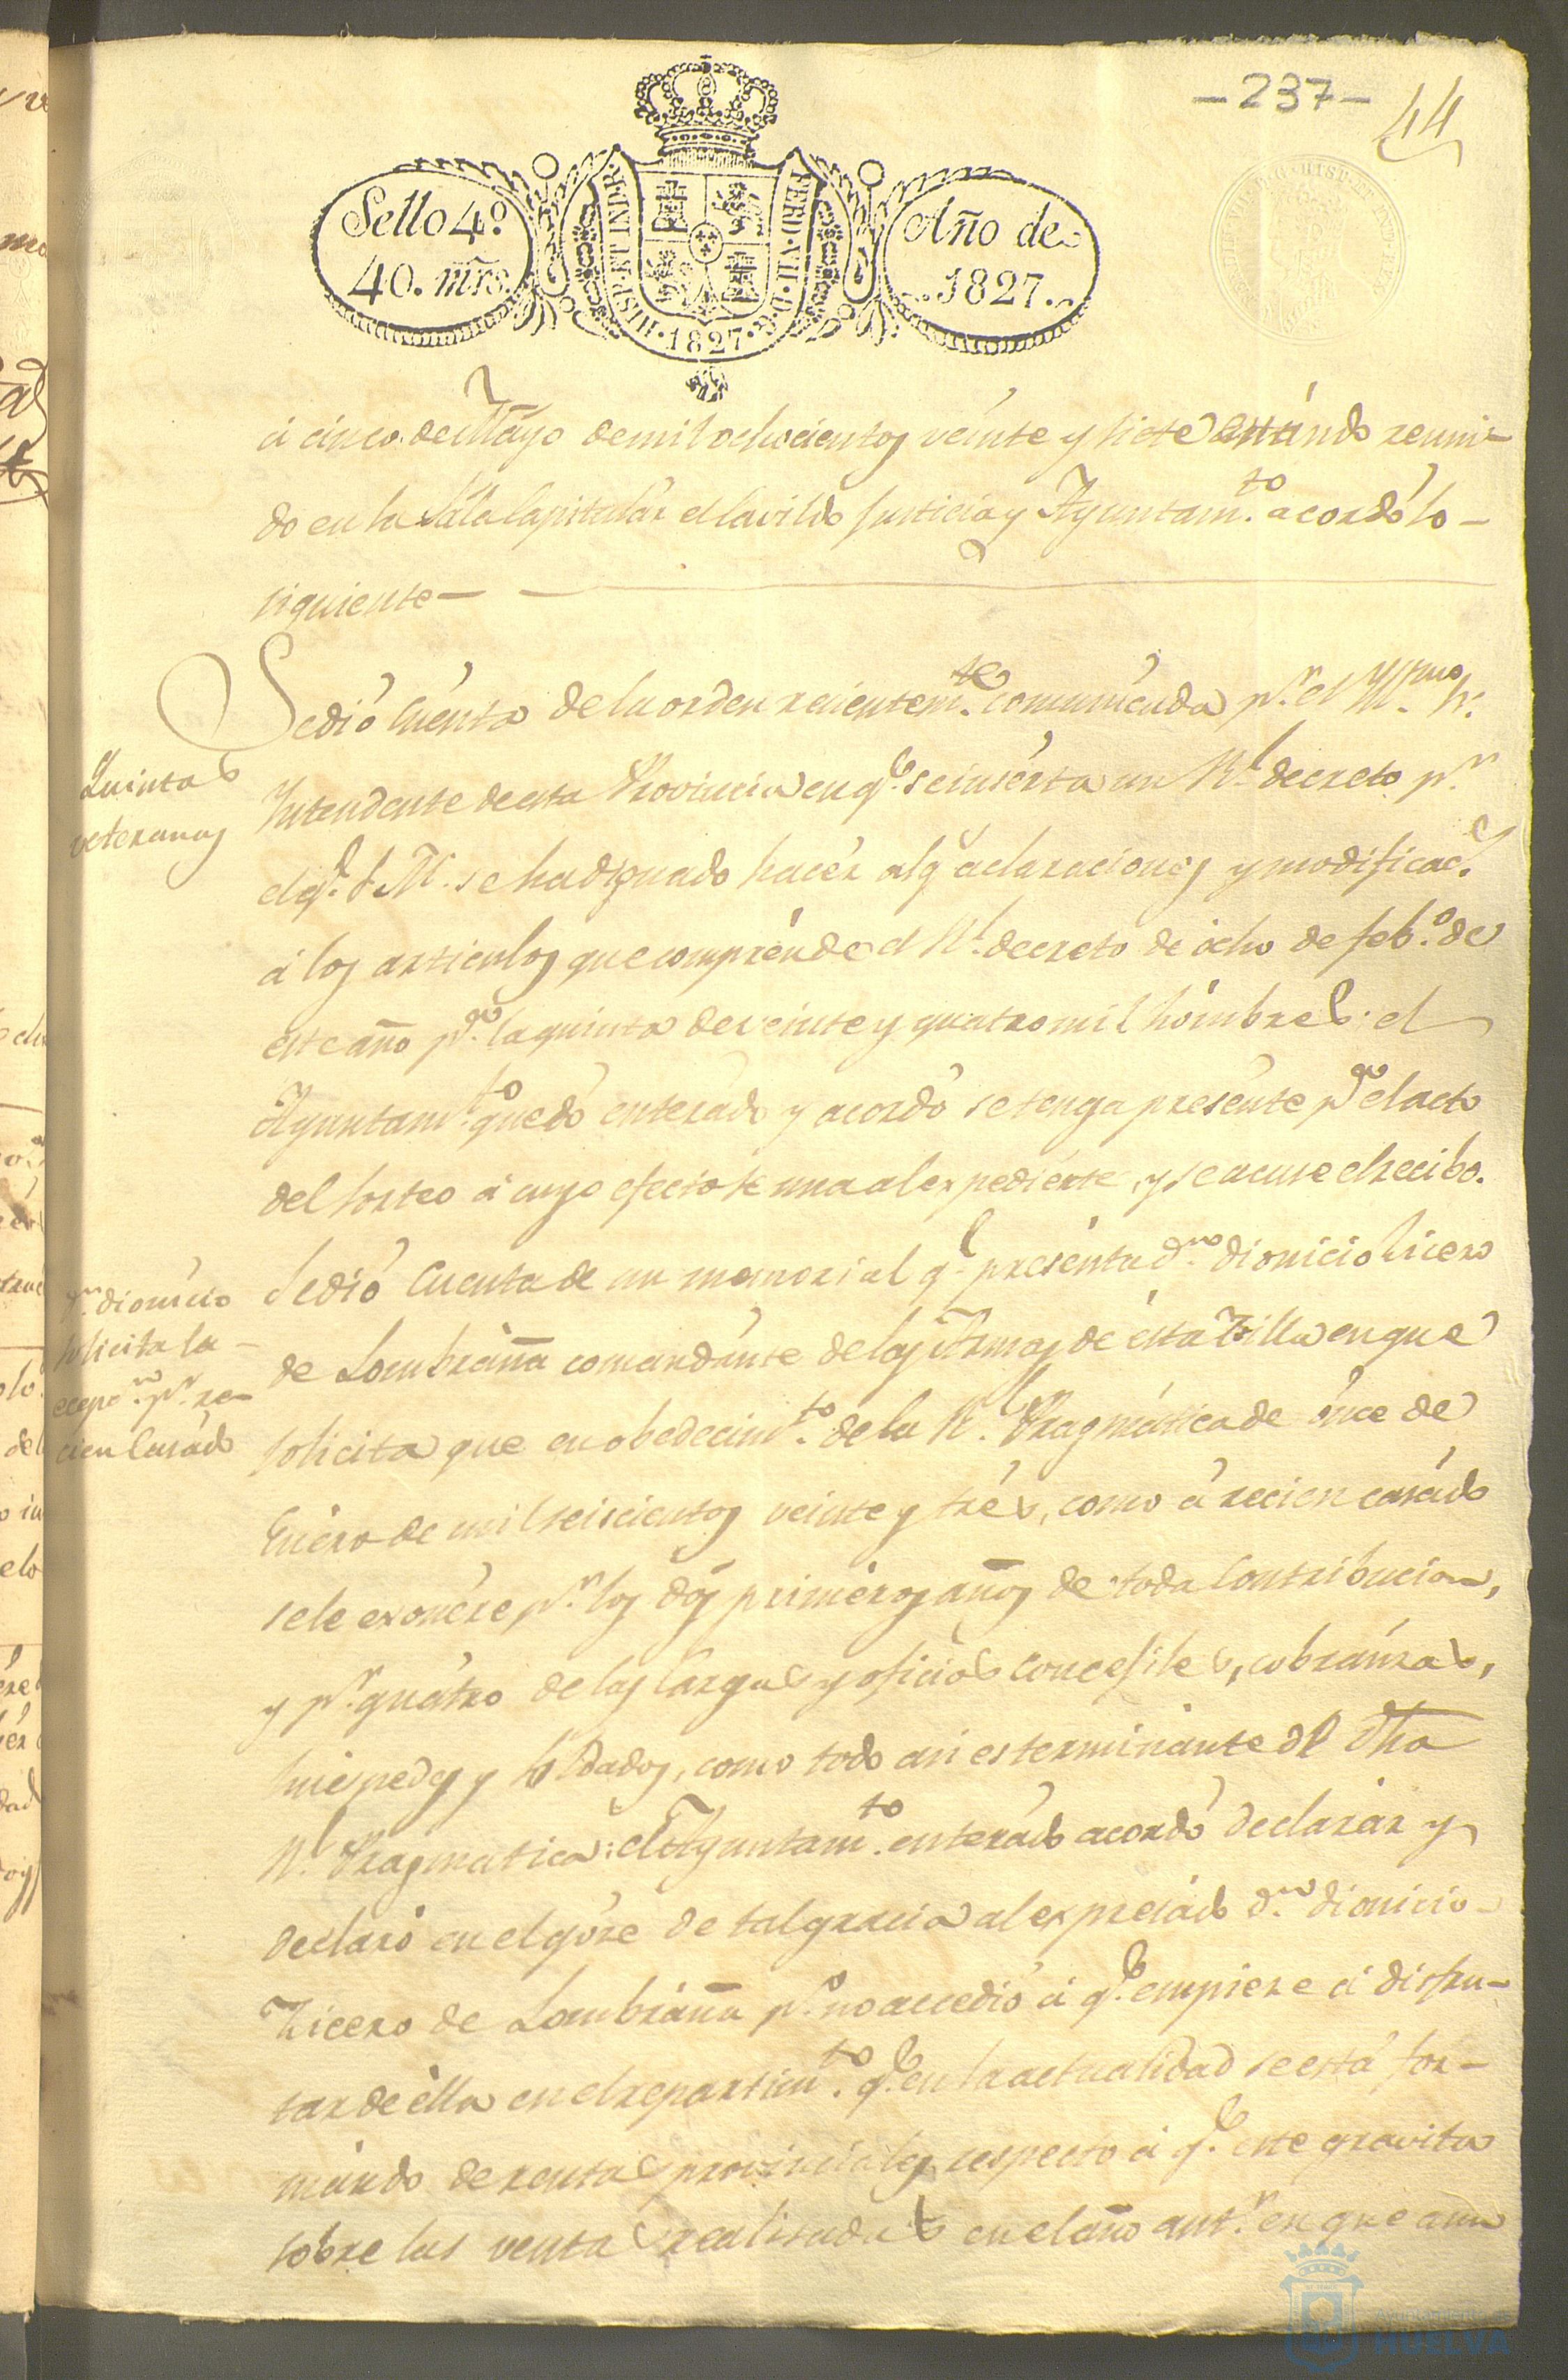 -237-
44
Sello 4º.
40. mrs.
HISP. ET IND. R.
FERD. VII. D. G.
1827
Año de
1827.
á cinco de Mayo de mil ochocientos veinte y siete estando reuni-
do en la Sala Capitular el Cavildo Justicia y Ayuntam.to acordó lo-
siguiente-
Se dió Cuenta de la orden recientem.te comunicada p.r el Yll.mo Sr.
Quintas
veteranos
Intendente de esta Provincia en q.e se inserta un R.l decreto p.r
el q.e S. M. se ha dignado hacer alg.s aclaraciones y modificac.s
á los articulos que comprende el R.l decreto de ocho de feb.o de
este año p.a la quinta de veinte y quatro mil hombres: el
Ayuntam.to quedó enterado y acordó se tenga presente p.a el acto
del sorteo á cuyo efecto se una al expediente, y se acuse el recibo.
Se dió Cuenta de un memorial q.e presenta d.n dionicio Ricero
d.n dionicio
solicita la
ecepc.n p.r re-
cien Casado
de Lombraña comandante de las Armas de ésta Villa en que
solicita que en obedecim.to de la R.l Pragmática de once de
Enero de mil seiscientos veinte y tres, como á recien casado
se le exonere p.r los dos primeros años de toda Contribucion,
y p.r quatro de las Cargas y oficios Concegiles, cobranzas,
huespedes y Soldados, como todo asi es terminante de dha
R.l Pragmatica: el Ayuntam.to enterado acordó declarar y
declaró en el goze de tal gracia al expresado d.n dionicio-
Ricero de Lombraña p.o no accedió á q.e empieze á disfru-
tar de élla en el repartim.to q.e en la actualidad se está for-
mando de rentas provinciales respecto á q.e este gravita
sobre las ventas realisadas en el año ant.r en que aun
Ayuntamiento de
HUELVA